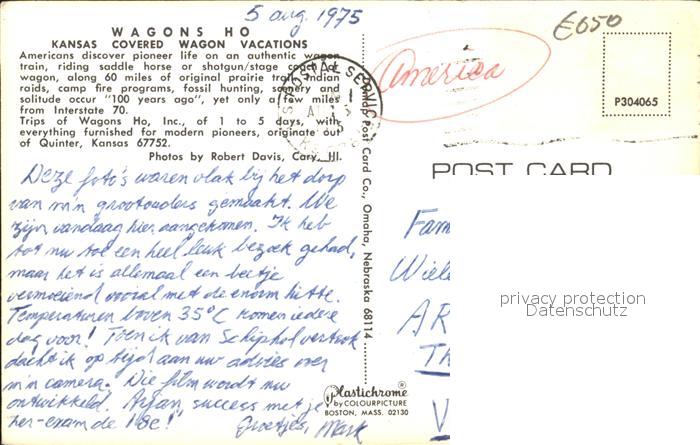 5 aug. 1975
€050
WAGONS HO
KANSAS COVERED WAGON VACATIONS
Americans discover pioneer life on an authentic wagon
train, riding saddle horse or shotgun/stage coach or
wagon, along 60 miles of original prairie trail. Indian
raids, camp fire programs, fossil hunting, scenery and
solitude occur "100 years ago", yet only a few miles
from Interstate 70.
Trips of Wagons Ho, Inc., of 1 to 5 days, with
everything furnished for modern pioneers, originate out
of Quinter, Kansas 67752.
Photos by Robert Davis, Cary, Ill.
America
P304065
POST CARD
Deze foto's waren vlak bij het dorp
van m'n grootouders gemaakt. We
zijn vandaag hier aangekomen. Ik heb
tot nu toe een heel leuk bezoek gehad,
maar het is allemaal een beetje
vermoeiend vooral met de enorm hitte.
Temperaturen boven 35°C komen iedere
dag voor! Toen ik van Schiphol vertrok
dacht ik op tijd aan uw advies over
m'n camera. Die film wordt nu
ontwikkeld. Arjan, success met je
her-exam de 18e!
Groetjes, Mark
Post Card Co., Omaha, Nebraska 68114
Plastichrome®
by COLOURPICTURE
BOSTON, MASS. 02130
Fam
Wiele
AR
Th
V
privacy protection
Datenschutz